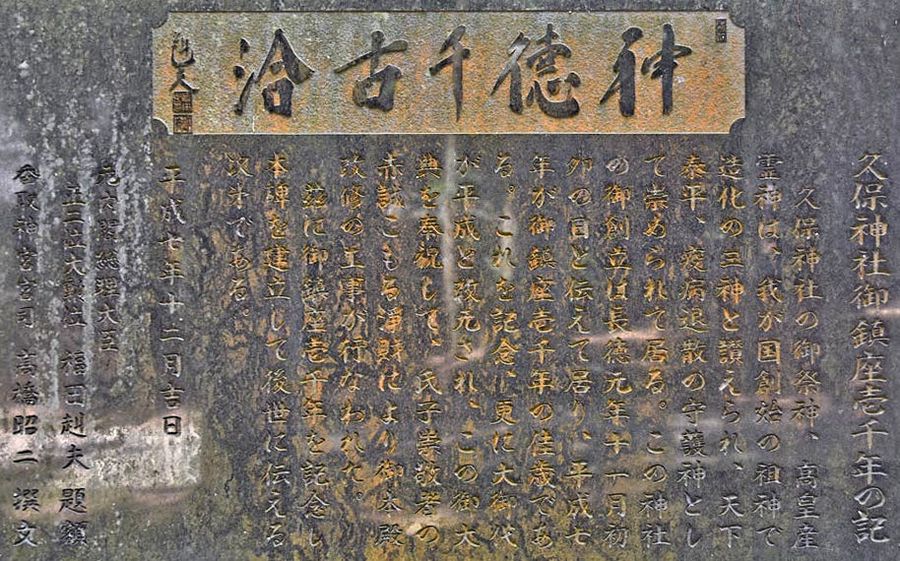 神徳千古洽
赳夫
久保神社御鎮座壱千年の記
久保神社の御祭神、高皇産
霊神は、我が国創始の祖神で
造化の三神と讃えられ、天下
泰平、疫病退散の守護神とし
て崇められて居る。この神社
の御創立は長徳元年十一月初
卯の日と伝えて居り、平成七
年が御鎮座壱千年の佳歳であ
る。これを記念、更に大御代
が平成と改元され、この御大
典を奉祝して、氏子崇敬者の
赤誠こもる浄財により御本殿
改修の工事が行なわれた。
茲に御鎮座壱千年を記念し
本碑を建立して後世に伝える
次第である。
平成七年十二月吉日
元内閣総理大臣
正二位大勲位 福田赳夫 題額
香取神宮宮司 高橋昭二 撰文